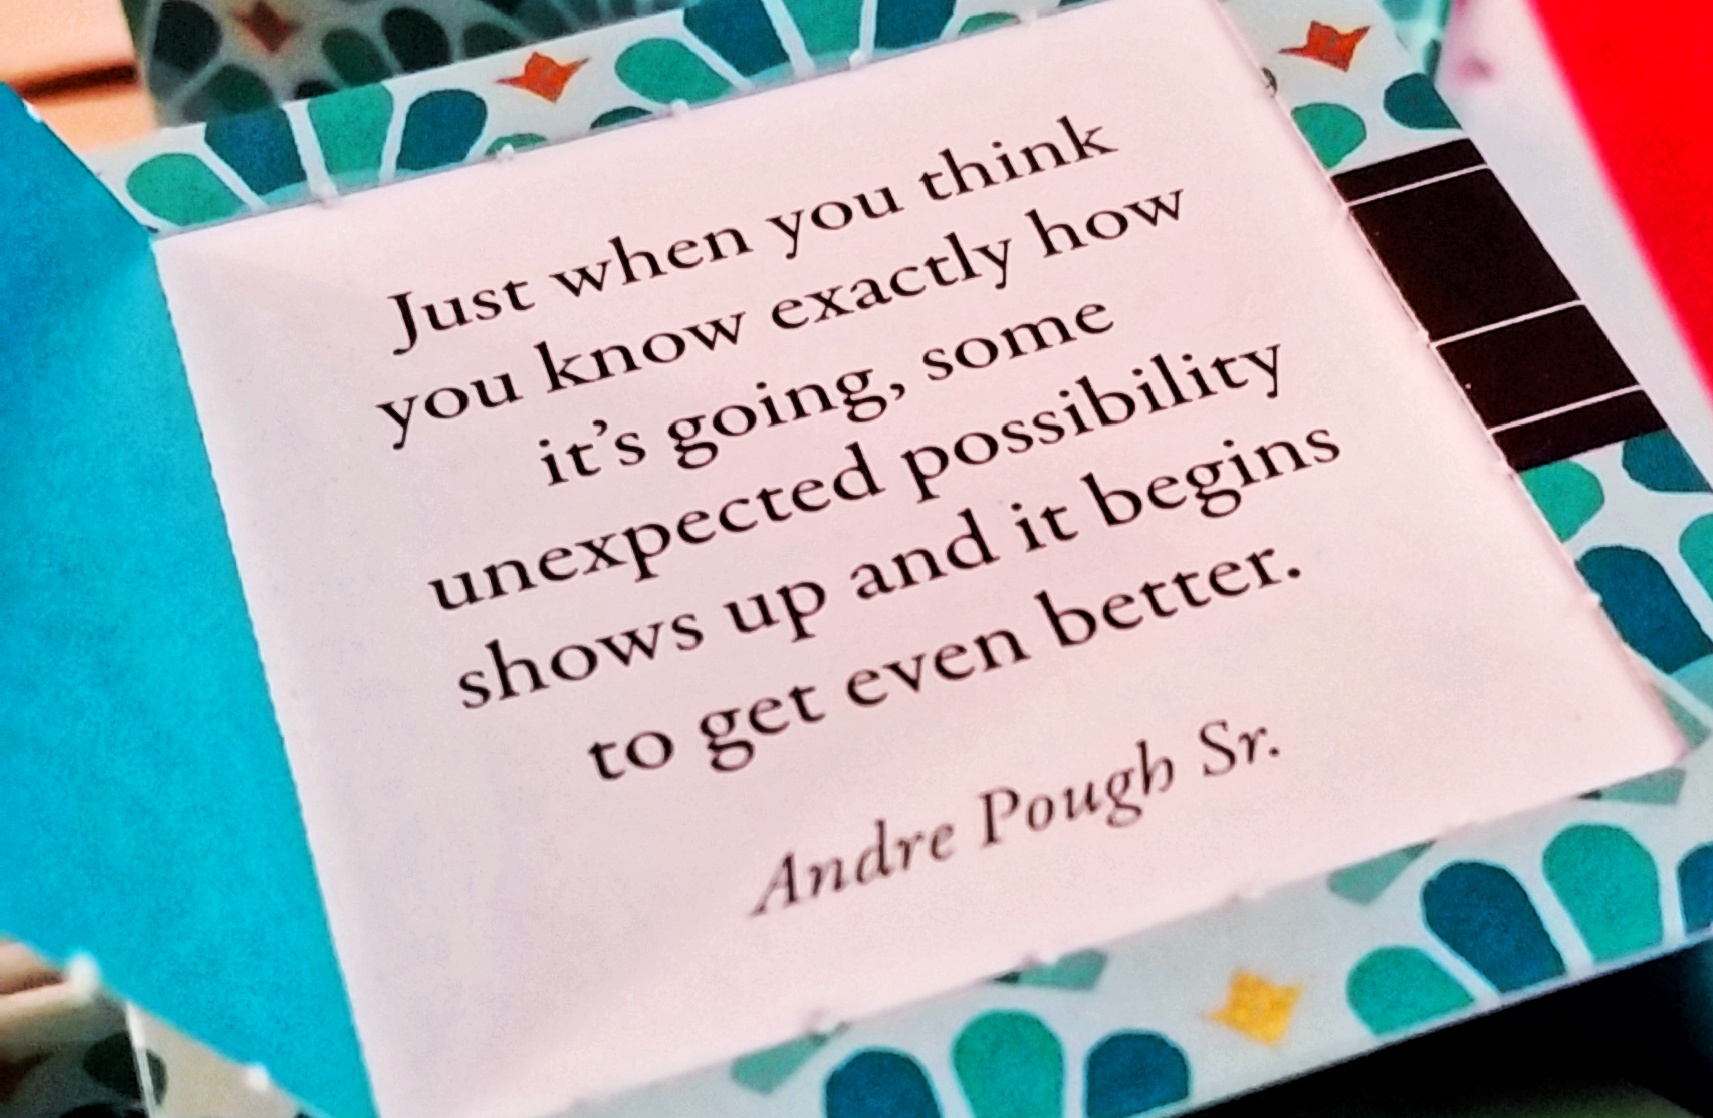 Just when you think
you know exactly how
it's going, some
unexpected possibility
shows up and it begins
to get even better.
Andre Pough Sr.